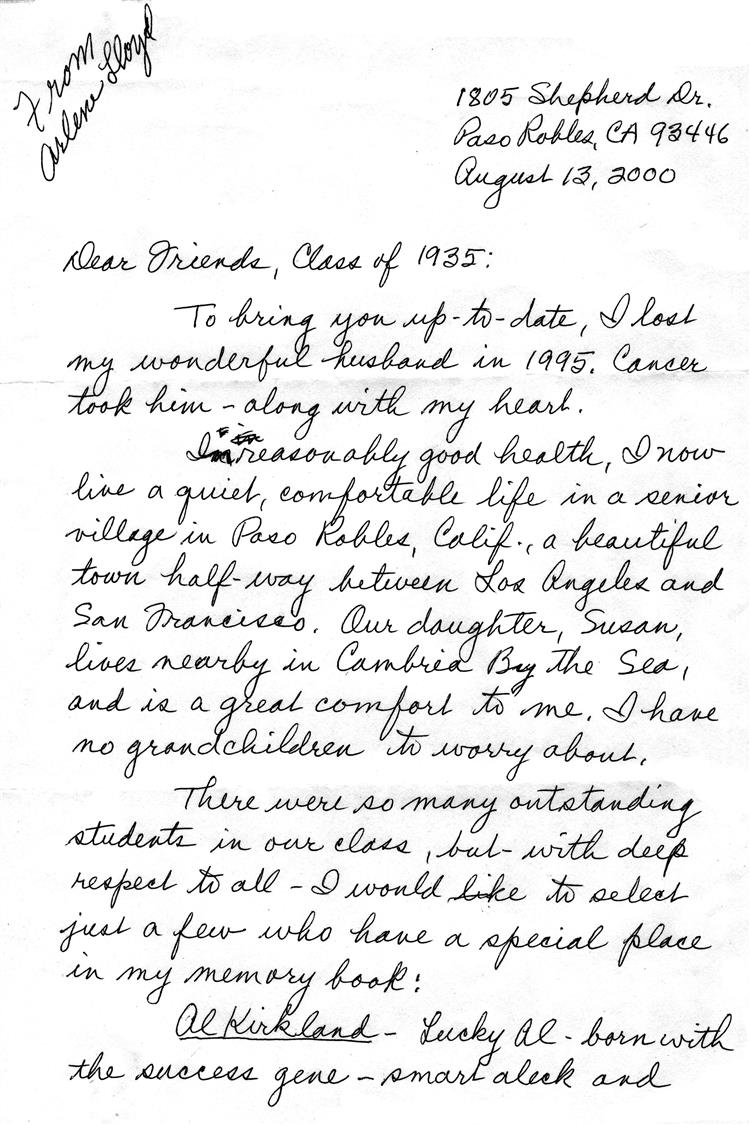 From
Arlene Lloyd
1805 Shepherd Dr.
Paso Robles, CA 93446
August 13, 2000
Dear Friends, Class of 1935:
To bring you up-to-date, I lost
my wonderful husband in 1995. Cancer
took him - along with my heart.
In reasonably good health, I now
live a quiet, comfortable life in a senior
village in Paso Robles, Calif., a beautiful
town half-way between Los Angeles and
San Francisco. Our daughter, Susan,
lives nearby in Cambria By the Sea,
and is a great comfort to me. I have
no grandchildren to worry about.
There were so many outstanding
students in our class, but - with deep
respect to all - I would like to select
just a few who have a special place
in my memory book:
Al Kirkland - Lucky Al - born with
the success gene - smart aleck and